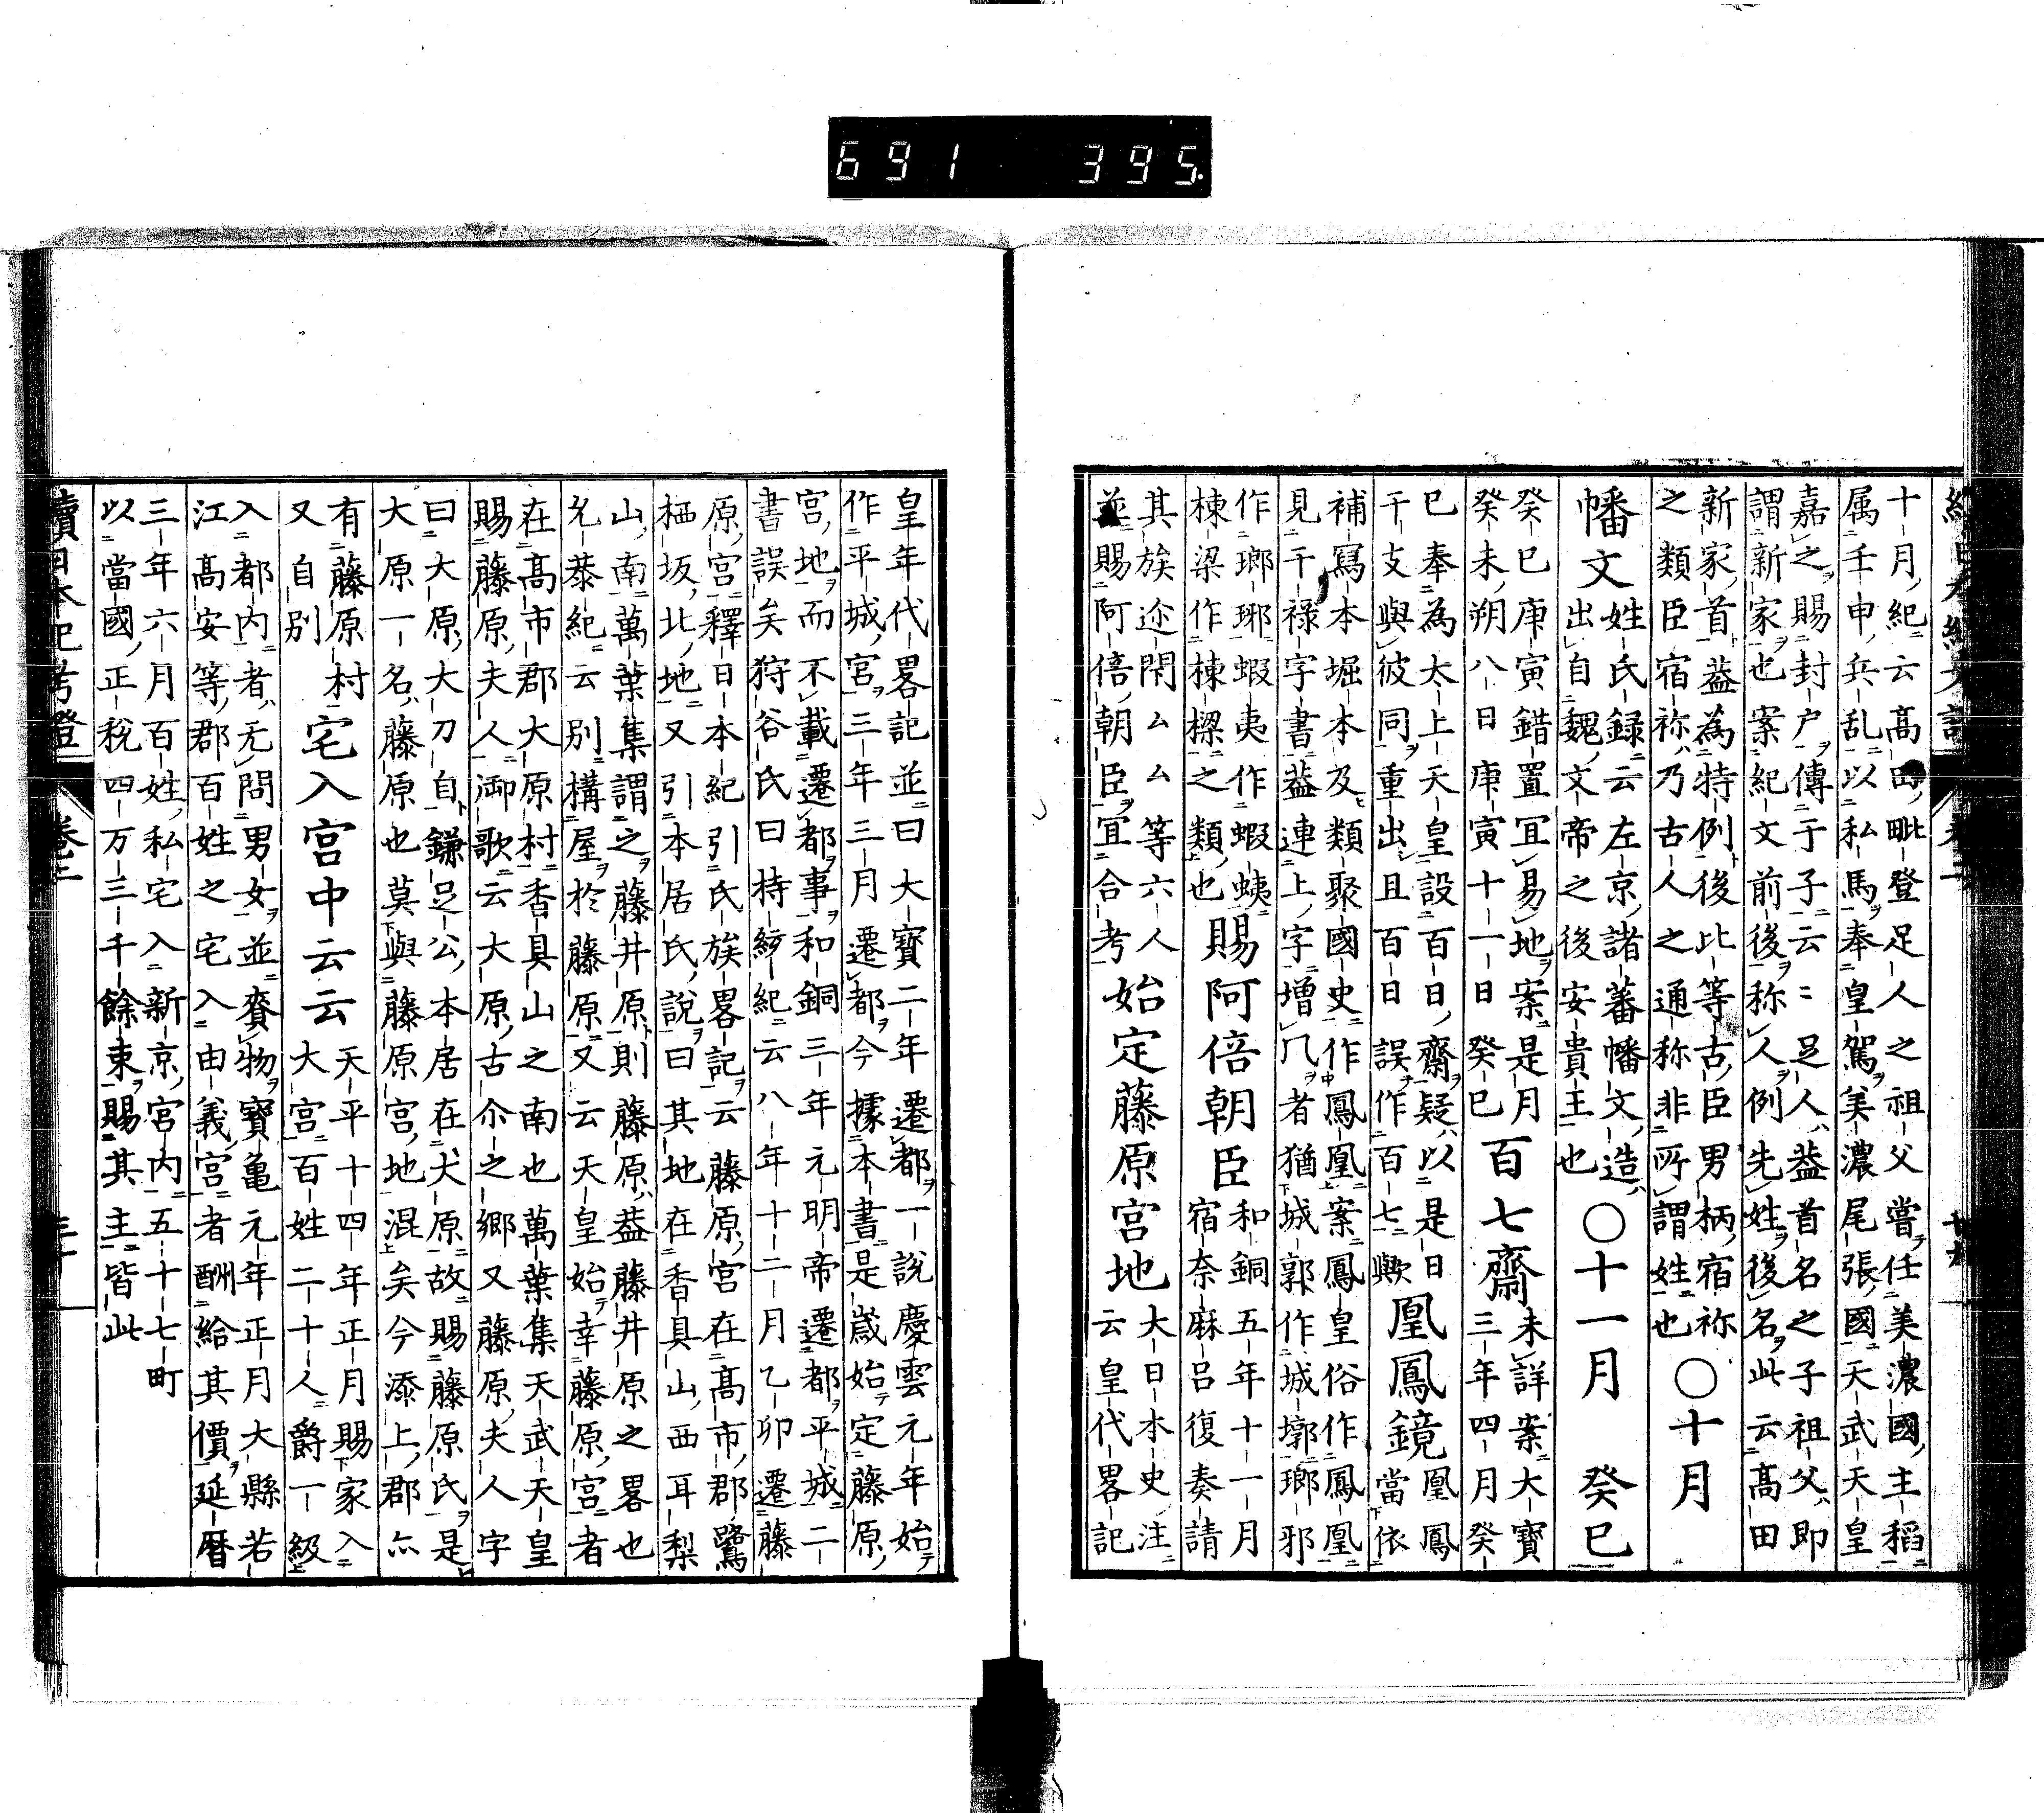 691 395
十月紀云高田毗登足人之祖父嘗任美濃國主稻
属壬申兵乱以私馬奉皇駕美濃尾張國天武天皇
嘉之賜封户傳于子云〻足人葢首名之子祖父即
謂新家也案紀文前後称人例先姓後名此云高田
新家首葢為特例後比等古臣男柄宿祢
之類臣宿祢乃古人之通称非所謂姓也〇十月
幡文姓氏録云左京諸蕃幡文造
出自魏文帝之後安貴王也〇十一月 癸巳
癸巳庚寅錯置冝易地案是月
癸未朔八日庚寅十一日癸巳百七齋未詳案大寶
三年四月癸
巳奉為太上天皇設百日齋疑以是日
干支與彼同重出且百日誤作百七歟凰鳳鏡凰鳳
當依
補寫本堀本及類聚國史作鳳凰案鳳皇俗作鳳凰
見干禄字書葢連上字増几者猶城郭作城墎瑯邪
作瑯琊蝦夷作蝦蛦
棟梁作棟樑之類也賜阿倍朝臣和銅五年十一月
宿奈麻呂復奏請
其族迩閇ムム等六人
並賜阿倍朝臣冝合考始定藤原宮地大日本史注
云皇代畧記
皇年代畧記並曰大寶二年遷都一說慶雲元年始
作平城宮三年三月遷都今據本書是歳始定藤原
宮地而不載遷都事和銅三年元明帝遷都平城二
書誤矣狩谷氏曰持統紀云八年十二月乙卯遷藤
原宮釋日本紀引氏族畧記云藤原宮在高市郡鷺
栖坂北地又引本居氏說曰其地在香具山西耳梨
山南萬葉集謂之藤井原則藤原葢藤井原之畧也
允恭紀云別構屋於藤原又云天皇始幸藤原宮者
在高市郡大原村香具山之南也萬葉集天武天皇
賜藤原夫人御歌云大原古尒之郷又藤原夫人字
曰大原大刀自鎌足公本居在大原故賜藤原氏是
大原一名藤原也莫與藤原宮地混矣今添上郡亦
有藤原村
又自別宅入宮中云云天平十四年正月賜家入
大宮百姓二十人爵一級
入都内者无問男女並賚物寶亀元年正月大縣若
江高安等郡百姓之宅入由義宮者酬給其價延暦
三年六月百姓私宅入新京宮内五十七町
以當國正税四万三千餘束賜其主皆此
續日本紀考證 卷二